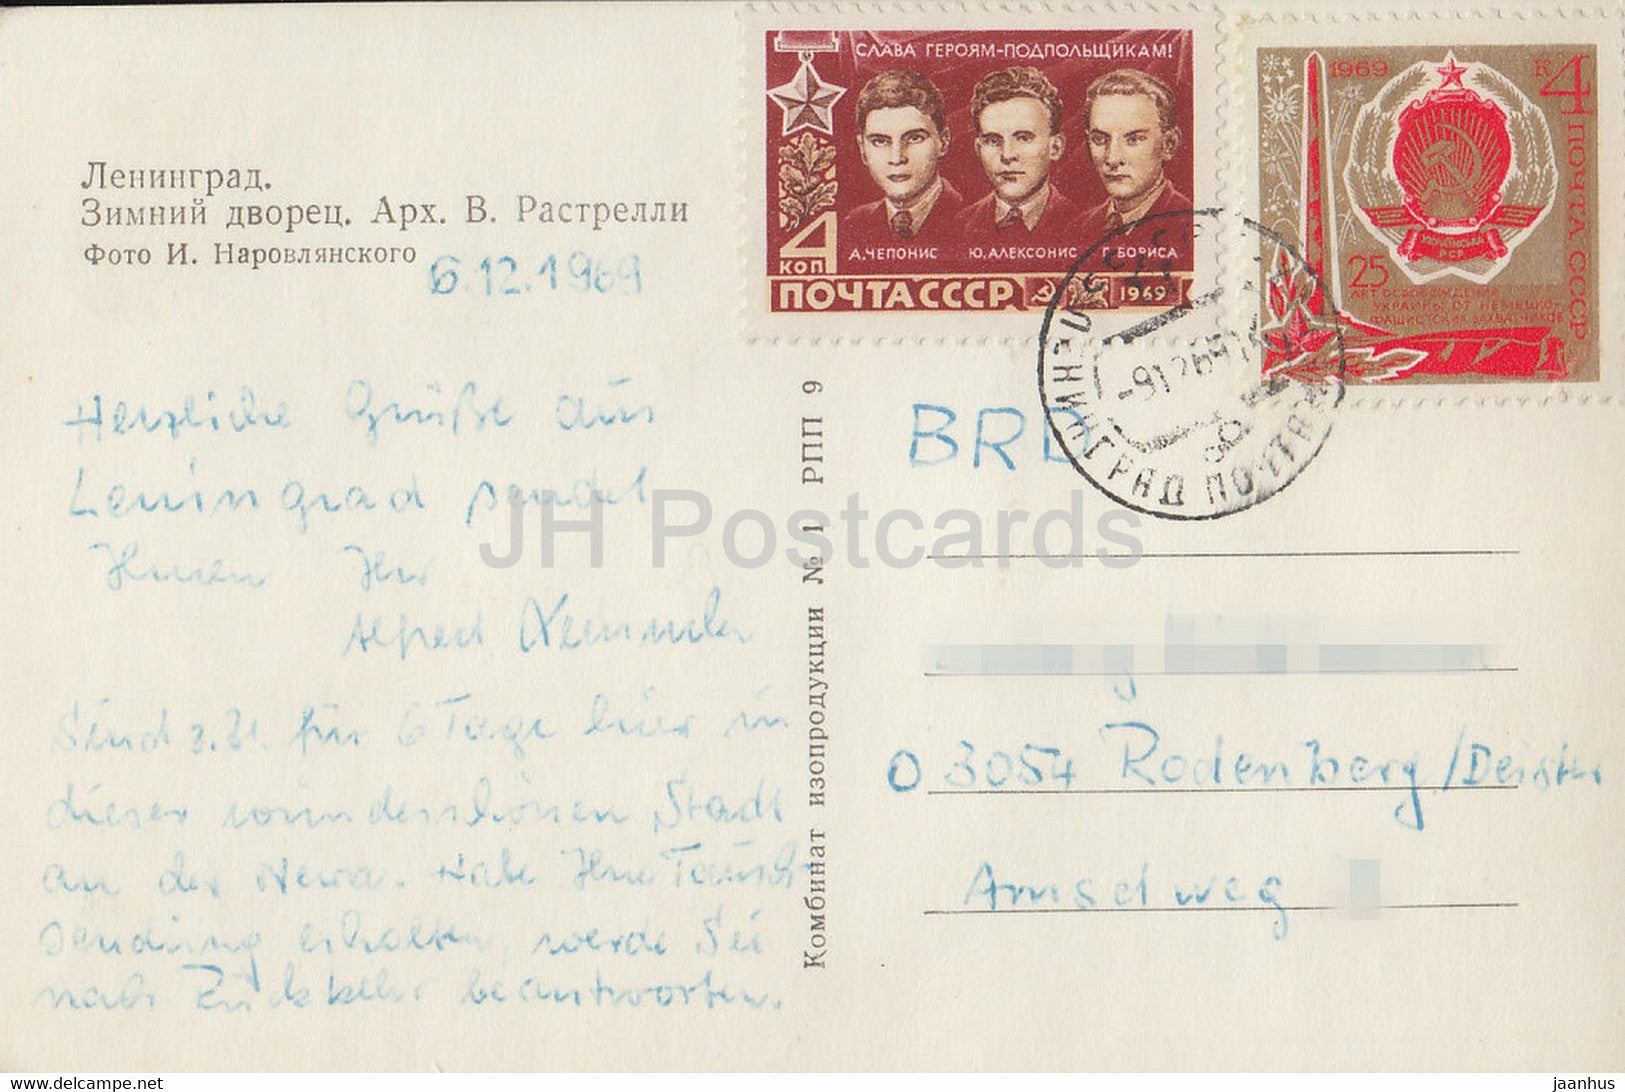 СЛАВА ГЕРОЯМ-ПОДПОЛЬЩИКАМ!
4 КОП
А.ЧЕПОНИС Ю.АЛЕКСОНИС Г.БОРИСА
ПОЧТА СССР 1969
1969
К 4
ПОЧТА СССР
УКРАЇНСЬКА
РСР
25
ЛЕТ ОСВОБОЖДЕНИЯ
УКРАИНЫ ОТ НЕМЕЦКО-
ФАШИСТСКИХ ЗАХВАТЧИКОВ
Ленинград.
Зимний дворец. Арх. В. Растрелли
Фото И. Наровлянского
6.12.1969
Herzliche Grüße aus
Leningrad sendet
Ihnen Ihr
Alfred
Sind z.Zt. für 6 Tage hier in
dieser wunderschönen Stadt
an der Newa. Habe Ihre Tausch-
sendung erhalten, werde Sie
nach Rückkehr beantworten.
Комбинат изопродукции № 1 РПП 9
ЛЕНИНГРАД
BRD
JH Postcards
3054 Rodenberg/Deister
Amselweg
https://www.delcampe.net
jaanhus